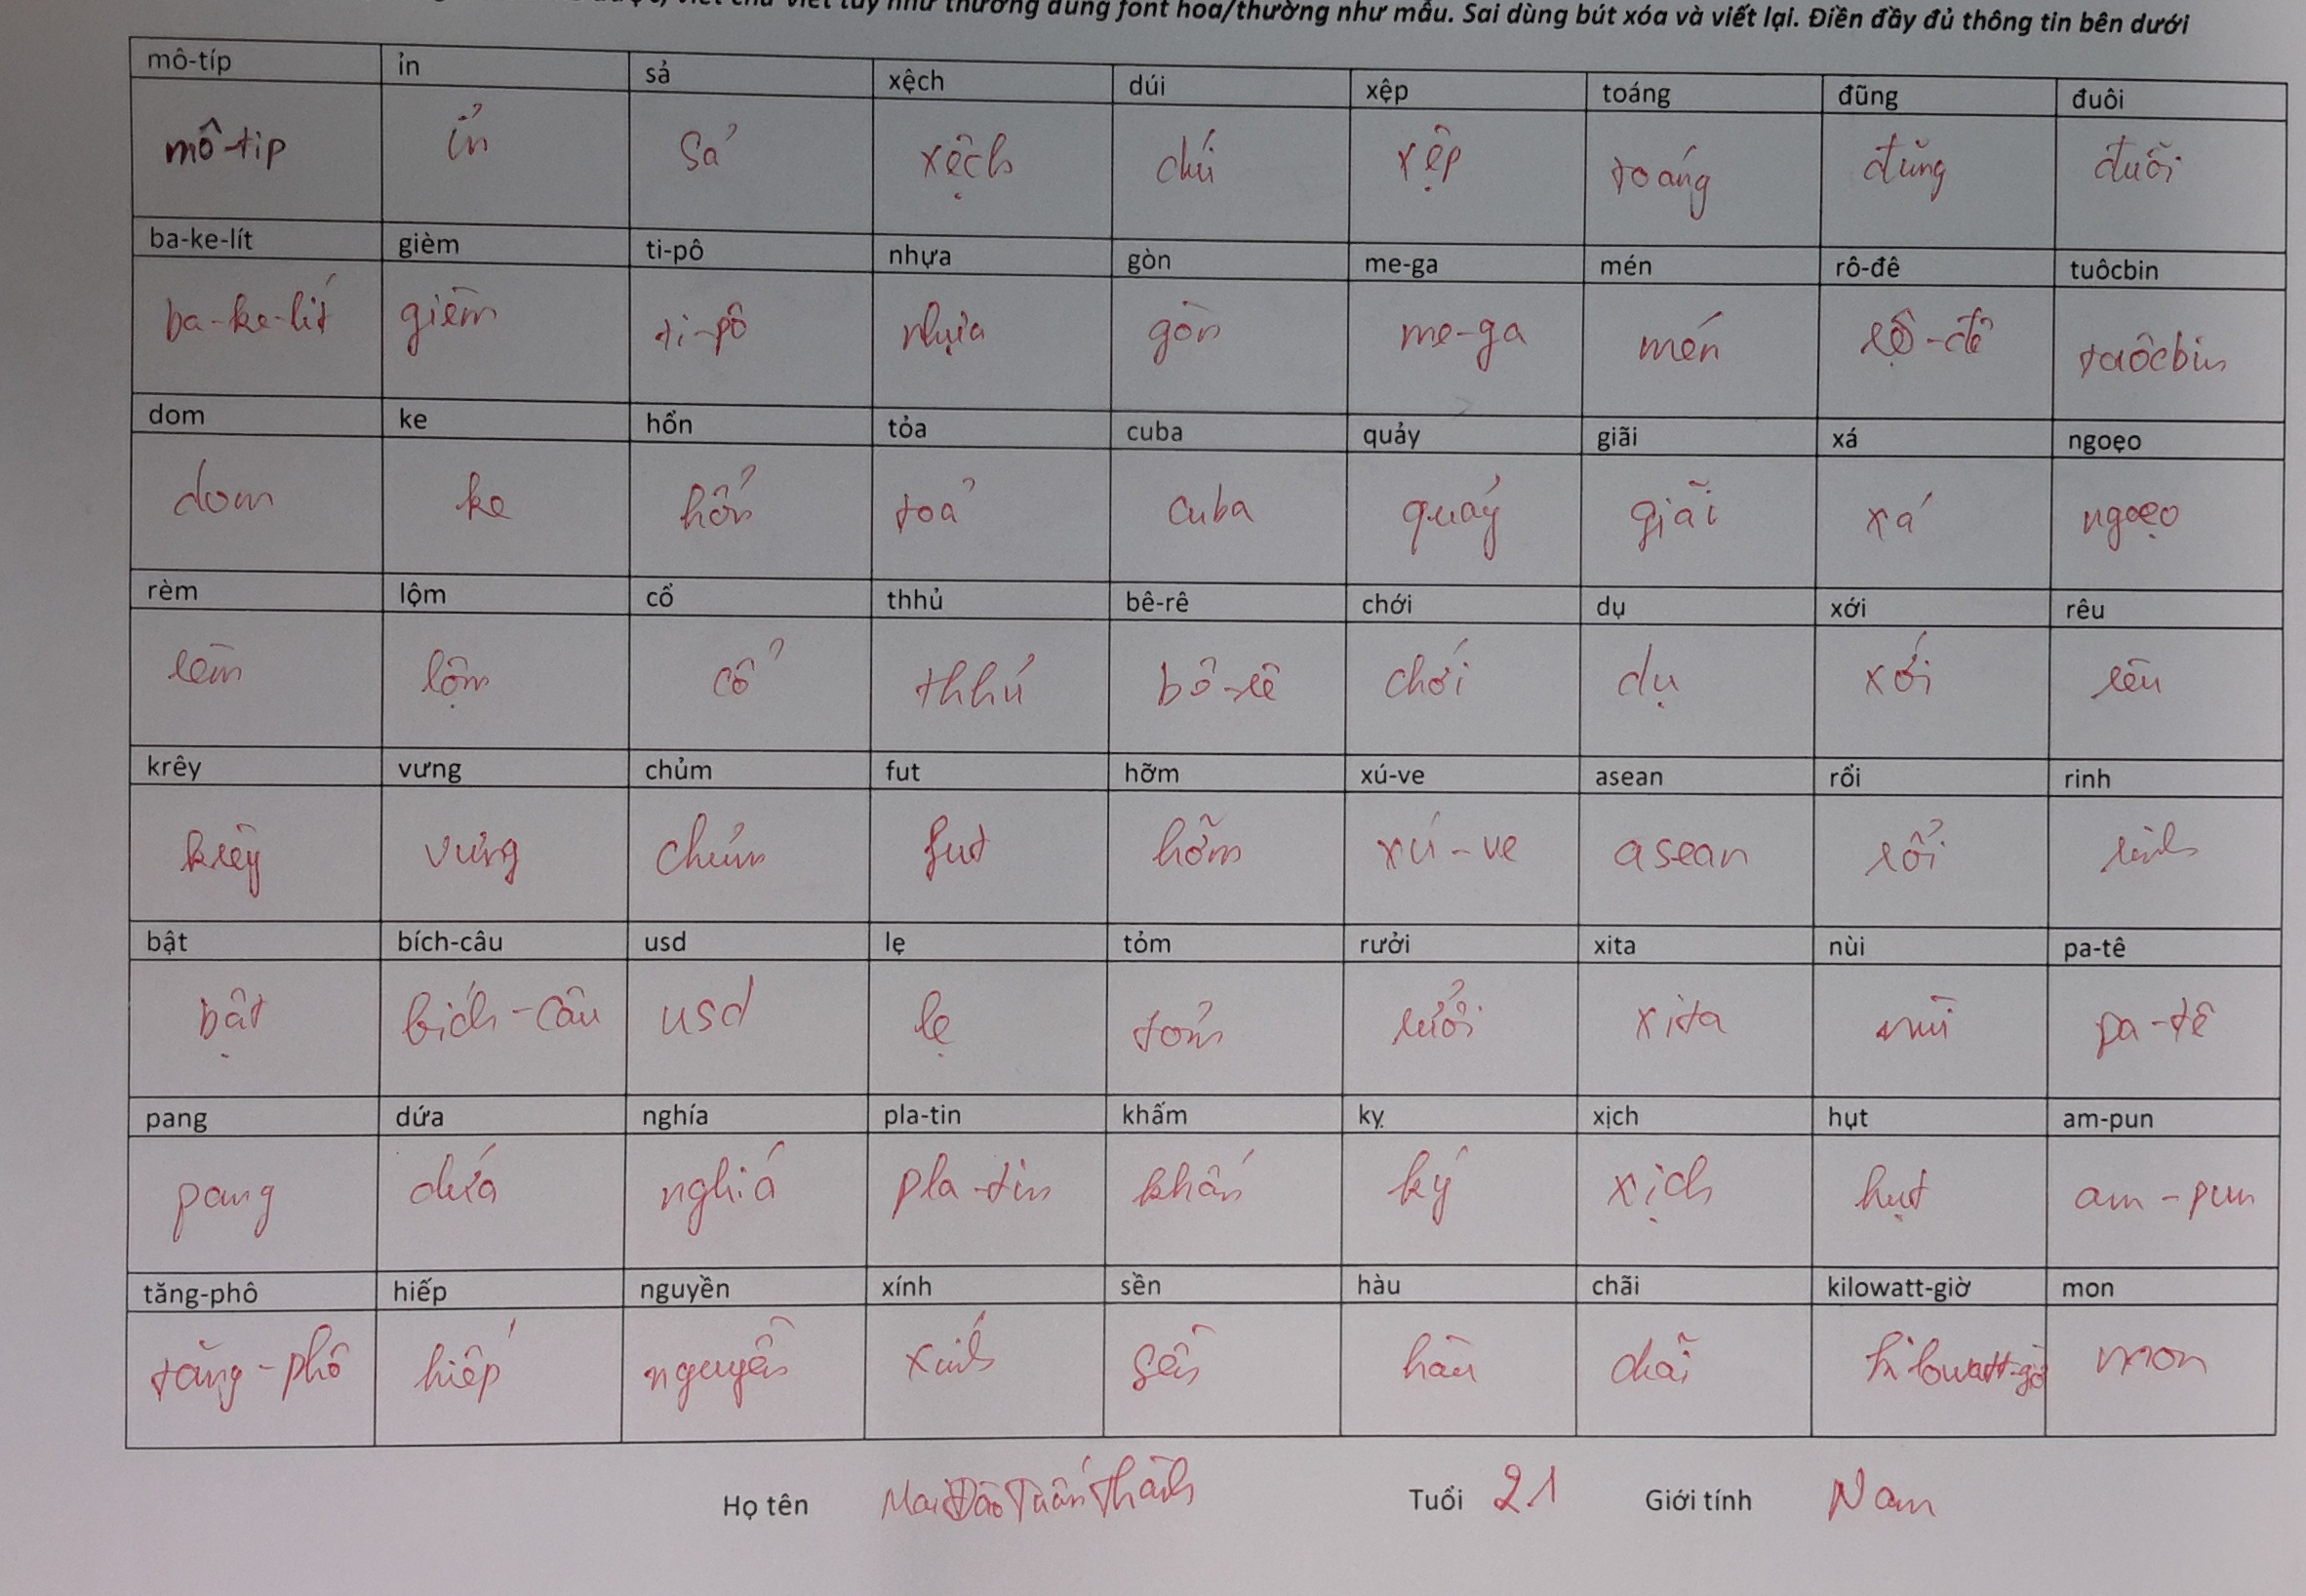 viết chữ viết tay như thường dùng font hoa/thường như mẫu. Sai dùng bút xóa và viết lại. Điền đầy đủ thông tin bên dưới
mô-típ ỉn sả xệch dúi xệp toáng đũng đuôi
mô-tip ỉn sả xệch dúi xệp toáng đũng đuỗi
ba-ke-lít gièm ti-pô nhựa gòn me-ga mén rô-đê tuôcbin
ba-ke-lít gièm ti-pô nhựa gòn me-ga mén rộ-đê tuôcbin
dom ke hổn tỏa cuba quảy giãi xá ngoẹo
dom ke hổn toả cuba quảy giãi xá ngoẹo
rèm lộm cổ thhủ bê-rê chới dụ xới rêu
rèm lộm cổ thhủ bê-rê chới dụ xới rêu
krêy vưng chủm fut hỡm xú-ve asean rổi rinh
krêy vưng chủm fut hỡm xú-ve asean rổi rinh
bật bích-câu usd lẹ tỏm rưởi xita nùi pa-tê
bật bích-câu usd lẹ tỏm rưởi xita nùi pa-tê
pang dứa nghía pla-tin khấm kỵ xịch hụt am-pun
pang dứa nghía pla-tin khấm ký xịch hụt am-pun
tăng-phô hiếp nguyền xính sền hàu chãi kilowatt-giờ mon
tăng-phô hiếp nguyền xính sền hàu chãi kilowatt-giờ mon
Họ tên Mai Đào Tuấn Thành Tuổi 21 Giới tính Nam